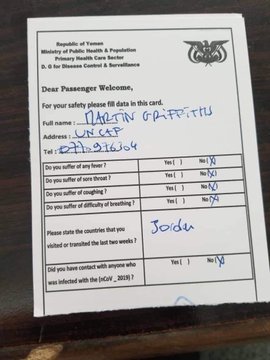 Republic of Yemen
Ministry of Public Health & Population
Primary Health Care Sector
D. G for Disease Control & Surveillance
Dear Passenger Welcome,
For your safety please fill data in this card.
Full name : MARTIN GRIFFITHS
Address : UNCAF
Tel :
Do you suffer of any fever ? Yes ( ) No (X)
Do you suffer of sore throat ? Yes ( ) No (X)
Do you suffer of coughing ? Yes ( ) No (X)
Do you suffer of difficulty of breathing ? Yes ( ) No (X)
Please state the countries that you
visited or transited the last two weeks ? Jordan
Did you have contact with anyone who
was infected with the (nCoV _ 2019) ? Yes ( ) No (X)